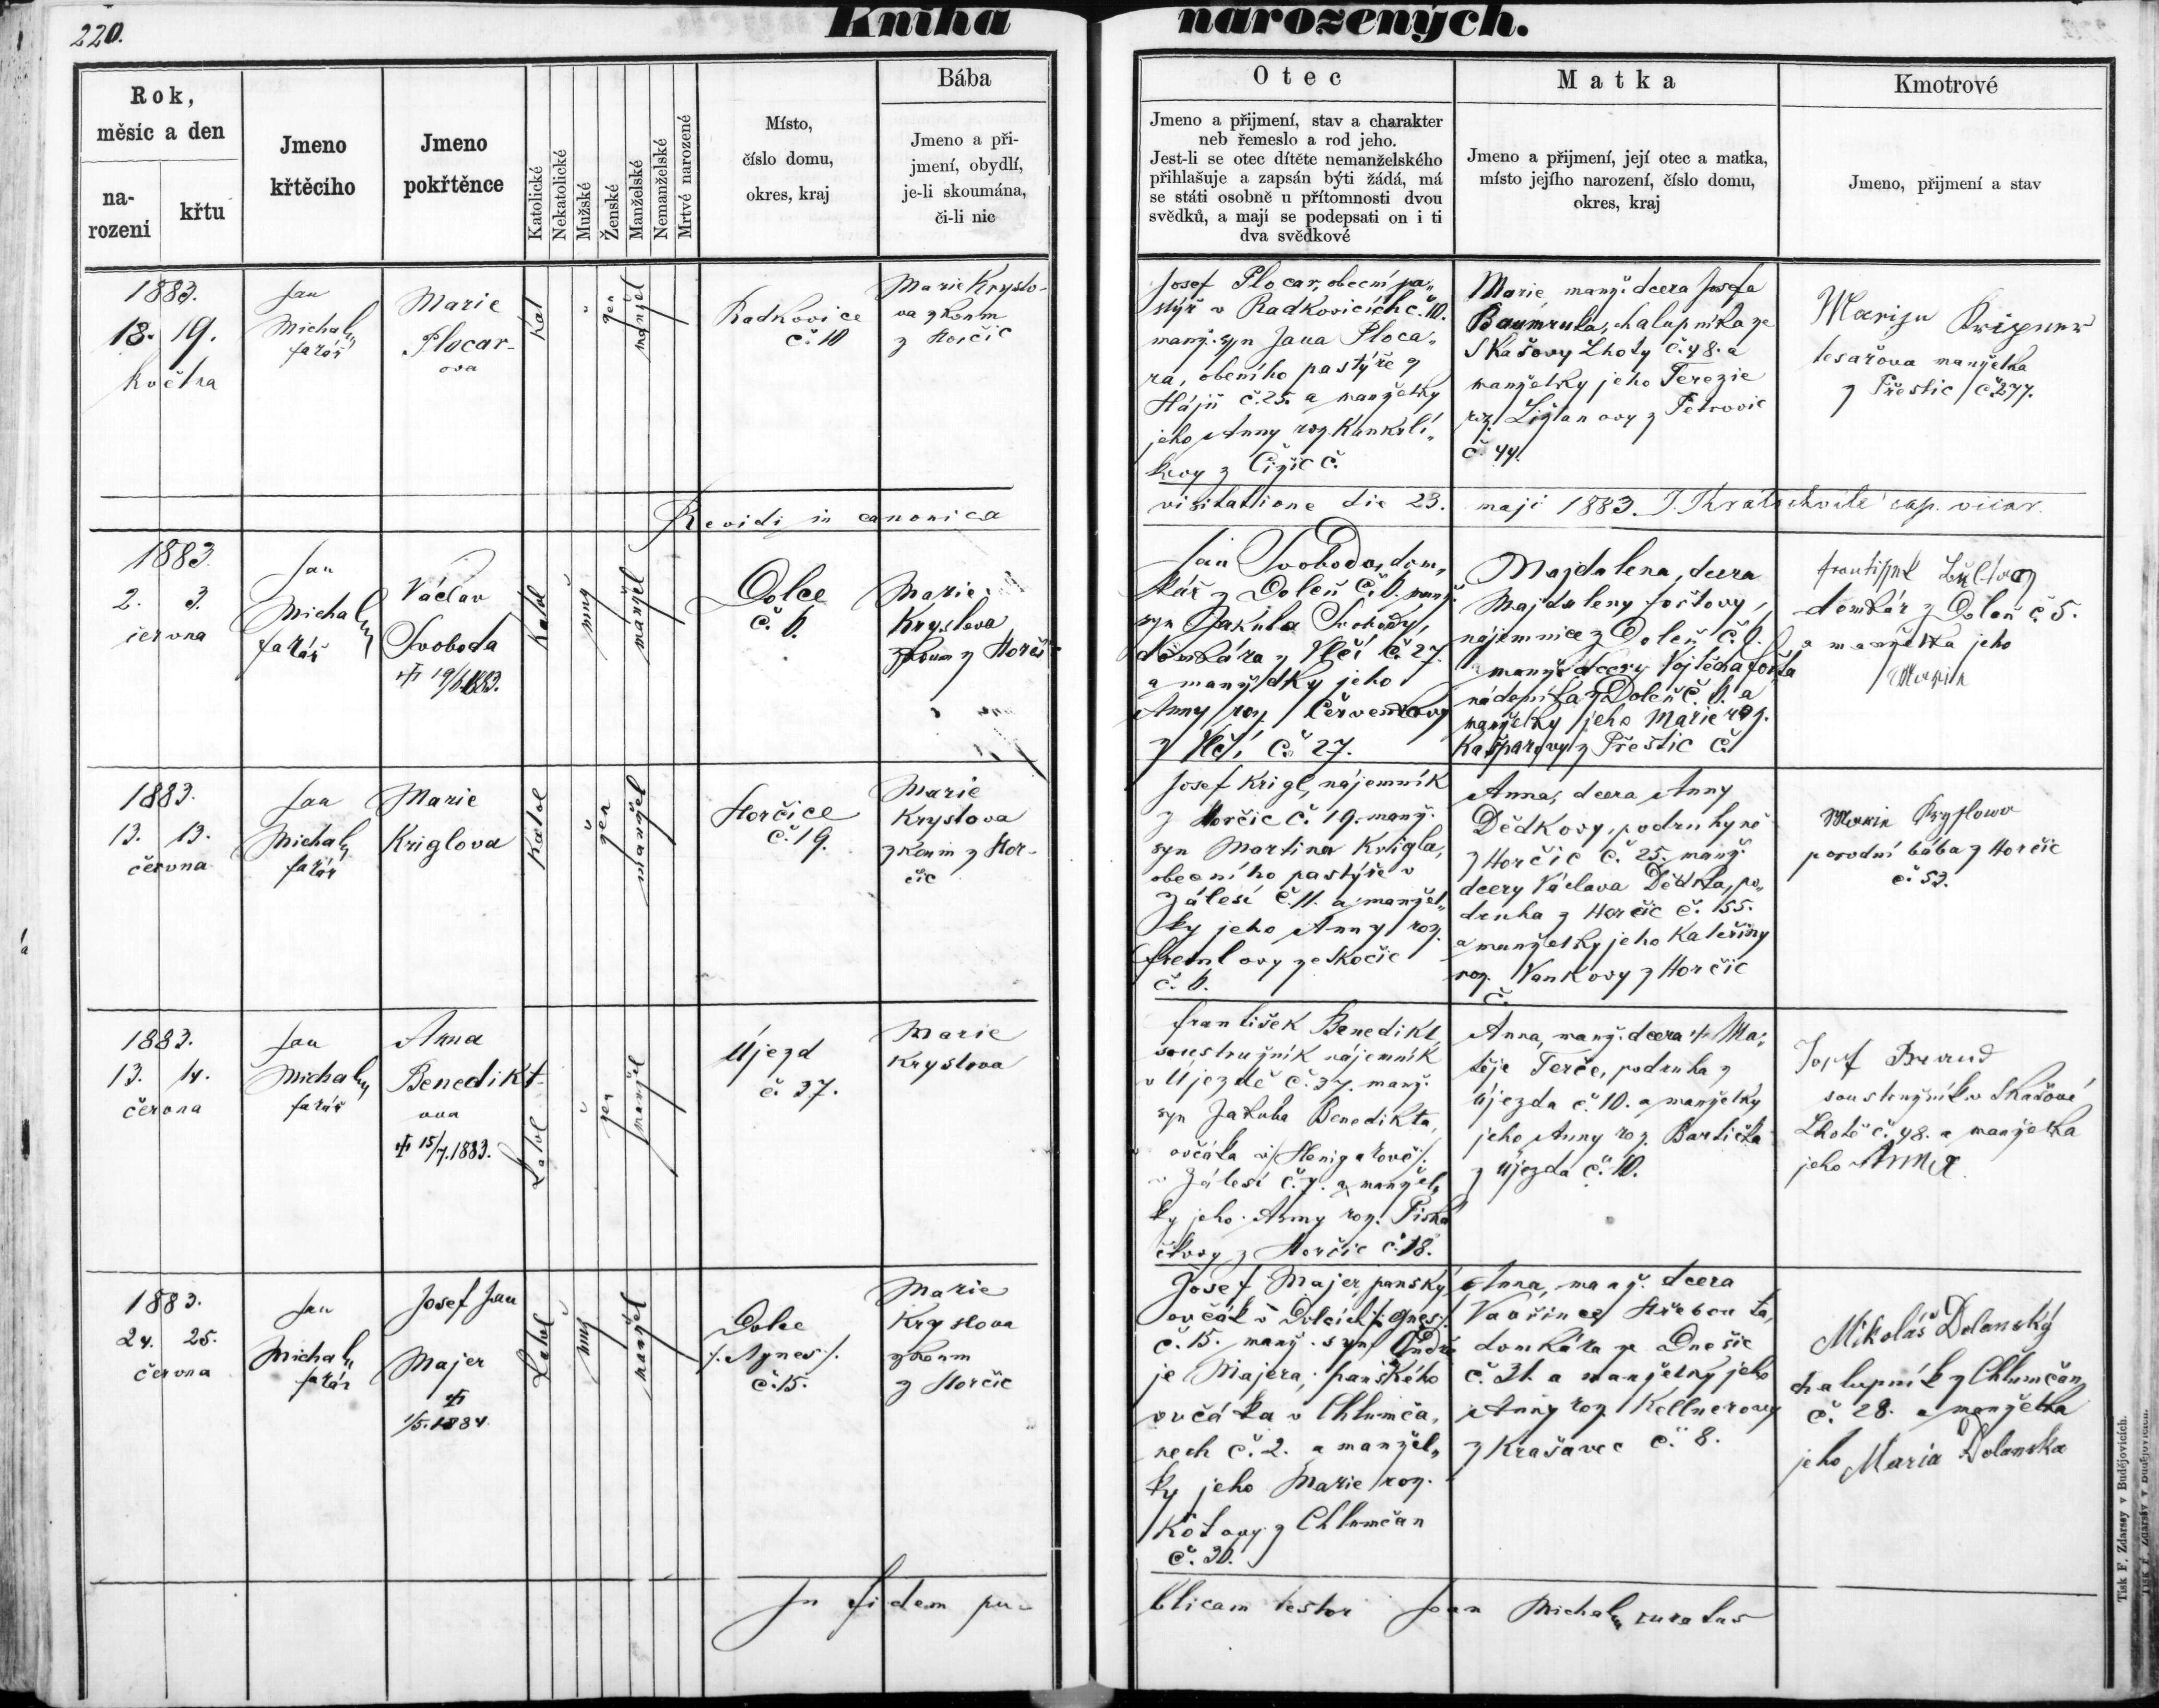 220.
Kniha narozených.
Rok,
měsíc a den
na-
rození
křtu
Jmeno
křtěcího
Jmeno
pokřtěnce
Katolické
Nekatolické
Mužské
Ženské
Manželské
Nemanželské
Mrtvé narozené
Místo,
číslo domu,
okres, kraj
Bába
Jmeno a při-
jmení, obydlí,
je-li skoumána,
či-li nic
Otec
Jmeno a přijmení, stav a charakter
neb řemeslo a rod jeho.
Jest-li se otec dítěte nemanželského
přihlašuje a zapsán býti žádá, má
se státi osobně u přítomnosti dvou
svědků, a mají se podepsati on i ti
dva svědkové
Matka
Jmeno a přijmení, její otec a matka,
místo jejího narození, číslo domu,
okres, kraj
Kmotrové
Jmeno, přijmení a stav
1883.
18. 19.
května
Jan
Michal
farář
Marie
Plocar-
ova
Kat
žen
manžel
Radkovice
č. 10
Marie Kryslo-
va zkoum
z Horčic
Josef Plocar, obecní pa-
stýř v Radkovicích č. 10.
manž. syn Jana Ploca-
ra, obecního pastýře z
Hájů č. 25. a manželky
jeho Anny roz.
z Čižic č.
Marie, manž. dcera Josefa
Baumruka, chalupníka ze
Skašovy Lhoty č. 48. a
manželky jeho Terezie
roz. z Petrovic
č. 44.
tesařova manželka
z Přeštic č 277.
Revidi in canonica
visitatione die 23. maji 1883. cap. vicar.
1883.
2. 3.
června
Jan
Michal
farář
Václav
Svoboda
19/6 1883.
Katol
muž
manžel
Dolce
č. 6.
Marie
Kryslova
zkoum z Horčic
Jan Svoboda, dom-
kář z Dolců č. 6. manž.
syn Jakuba Svobody,
domkáře z Vlčí č. 27.
a manželky jeho
Anny roz. Červenkovy
z Vlčí č. 27.
Majdalena, dcera
Majdaleny Foštovy,
nájemnice z Dolců č. 6.
manž. dcery Vojtěcha Fošta
nádeníka z Dolců č. 6. a
manželky jeho Marie roz.
Kašparovy z Přeštic č.
František
domkář z Dolců č 5.
a manželka jeho
Marie
1883.
13. 13.
června
Jan
Michal
farář
Marie
Kriglova
Katol
žen
manžel
Horčice
č. 19.
Marie
Kryslova
zkoum z Hor-
čic
Josef Krigl, nájemník
z Horčic č. 19. manž.
syn Martina Krigla,
obecního pastýře v
Zálesí č. 11. a manžel-
ky jeho Anny roz.
ze Skočic
č. 6.
Anna, dcera Anny
Dědkovy, podruhyně
z Horčic č. 25. manž.
dcery Václava Dědka, po-
druha z Horčic č. 155.
a manželky jeho Kateřiny
roz. Vankovy z Horčic
č.
Marie Kryslowa
porodní bába z Horčic
č. 53.
1883.
13. 14.
června
Jan
Michal
farář
Anna
Benedikt-
ova
15/7. 1883.
Katol
žen
manžel
Újezd
č. 37.
Marie
Kryslova
František Benedikt,
soustružník nájemník
v Újezdě č. 37. manž.
syn Jakuba Benedikta,
ovčáka
v Zálesí č. 7. a manžel-
ky jeho Anny roz. Piska-
čkovy z Horčic č. 18.
Anna, manž. dcera Ma-
těje Terče, podruha z
Újezda č. 10. a manželky
jeho Anny roz.
z Újezda č. 10.
Josef
soustružník v Skašové
Lhotě č. 48. a manželka
jeho Anna
1883.
24. 25.
června
Jan
Michal
farář
Josef Jan
Majer
1/5. 1884
Katol
muž
manžel
Dolce
/. Agnes /.
č. 15.
Marie
Kryslova
zkoum
z Horčic
Josef Majer, panský
ovčák v Dolcích /. Agnes /.
č. 15. manž. syn Ondře-
je Majera, panského
ovčáka v Chlumča-
nech č. 2. a manžel-
ky jeho Marie roz.
Kotovy z Chlumčan
č. 30.
Anna, manž. dcera
Vavřince
domkáře ze Dnešic
č. 31. a manželky jeho
Anny roz. Kellnerovy
z Krašavec č. 8.
Mikoláš Dolanský
chalupník z Chlumčan
č. 28. a manželka
jeho Maria Dolanska
In fidem pu-
blicam testor Joan Michal curatus
Tisk F. Zdarssy v Budějovicích.